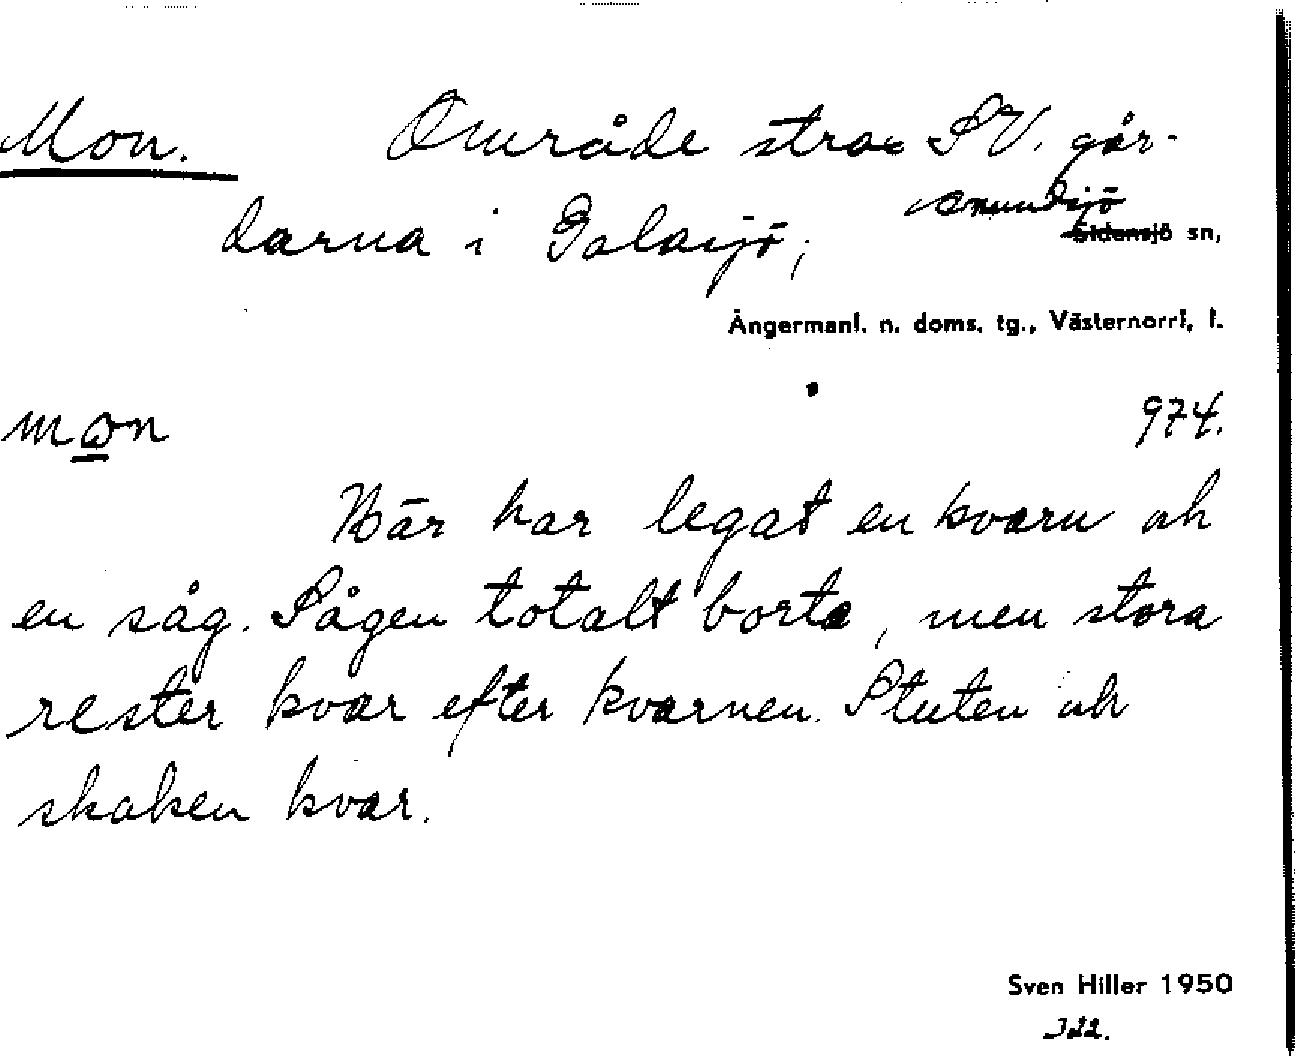 Mon. Område strax SV. går-
Anundsjö
darna i Galasjö; Sidensjö sn,
Ångermanl. n. doms. tg., Västernorrl. l.
mɷn 974.
Här har legat en kvarn och
en såg. Sågen totalt borta, men stora
rester kvar efter kvarnen. Stuten och
skaken kvar.
Sven Hiller 1950